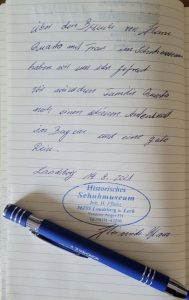 über den Besuch von
mit Frau im Schuhmuseum
haben wir uns sehr gefreut
Wir wünschen Familie
noch einen schönen
in Bayern und eine gute
Reise.
Landsberg 14. 8. 2018
Historisches
Schuhmuseum
Inh. H. Pflanz
86899 Landsberg a. Lech